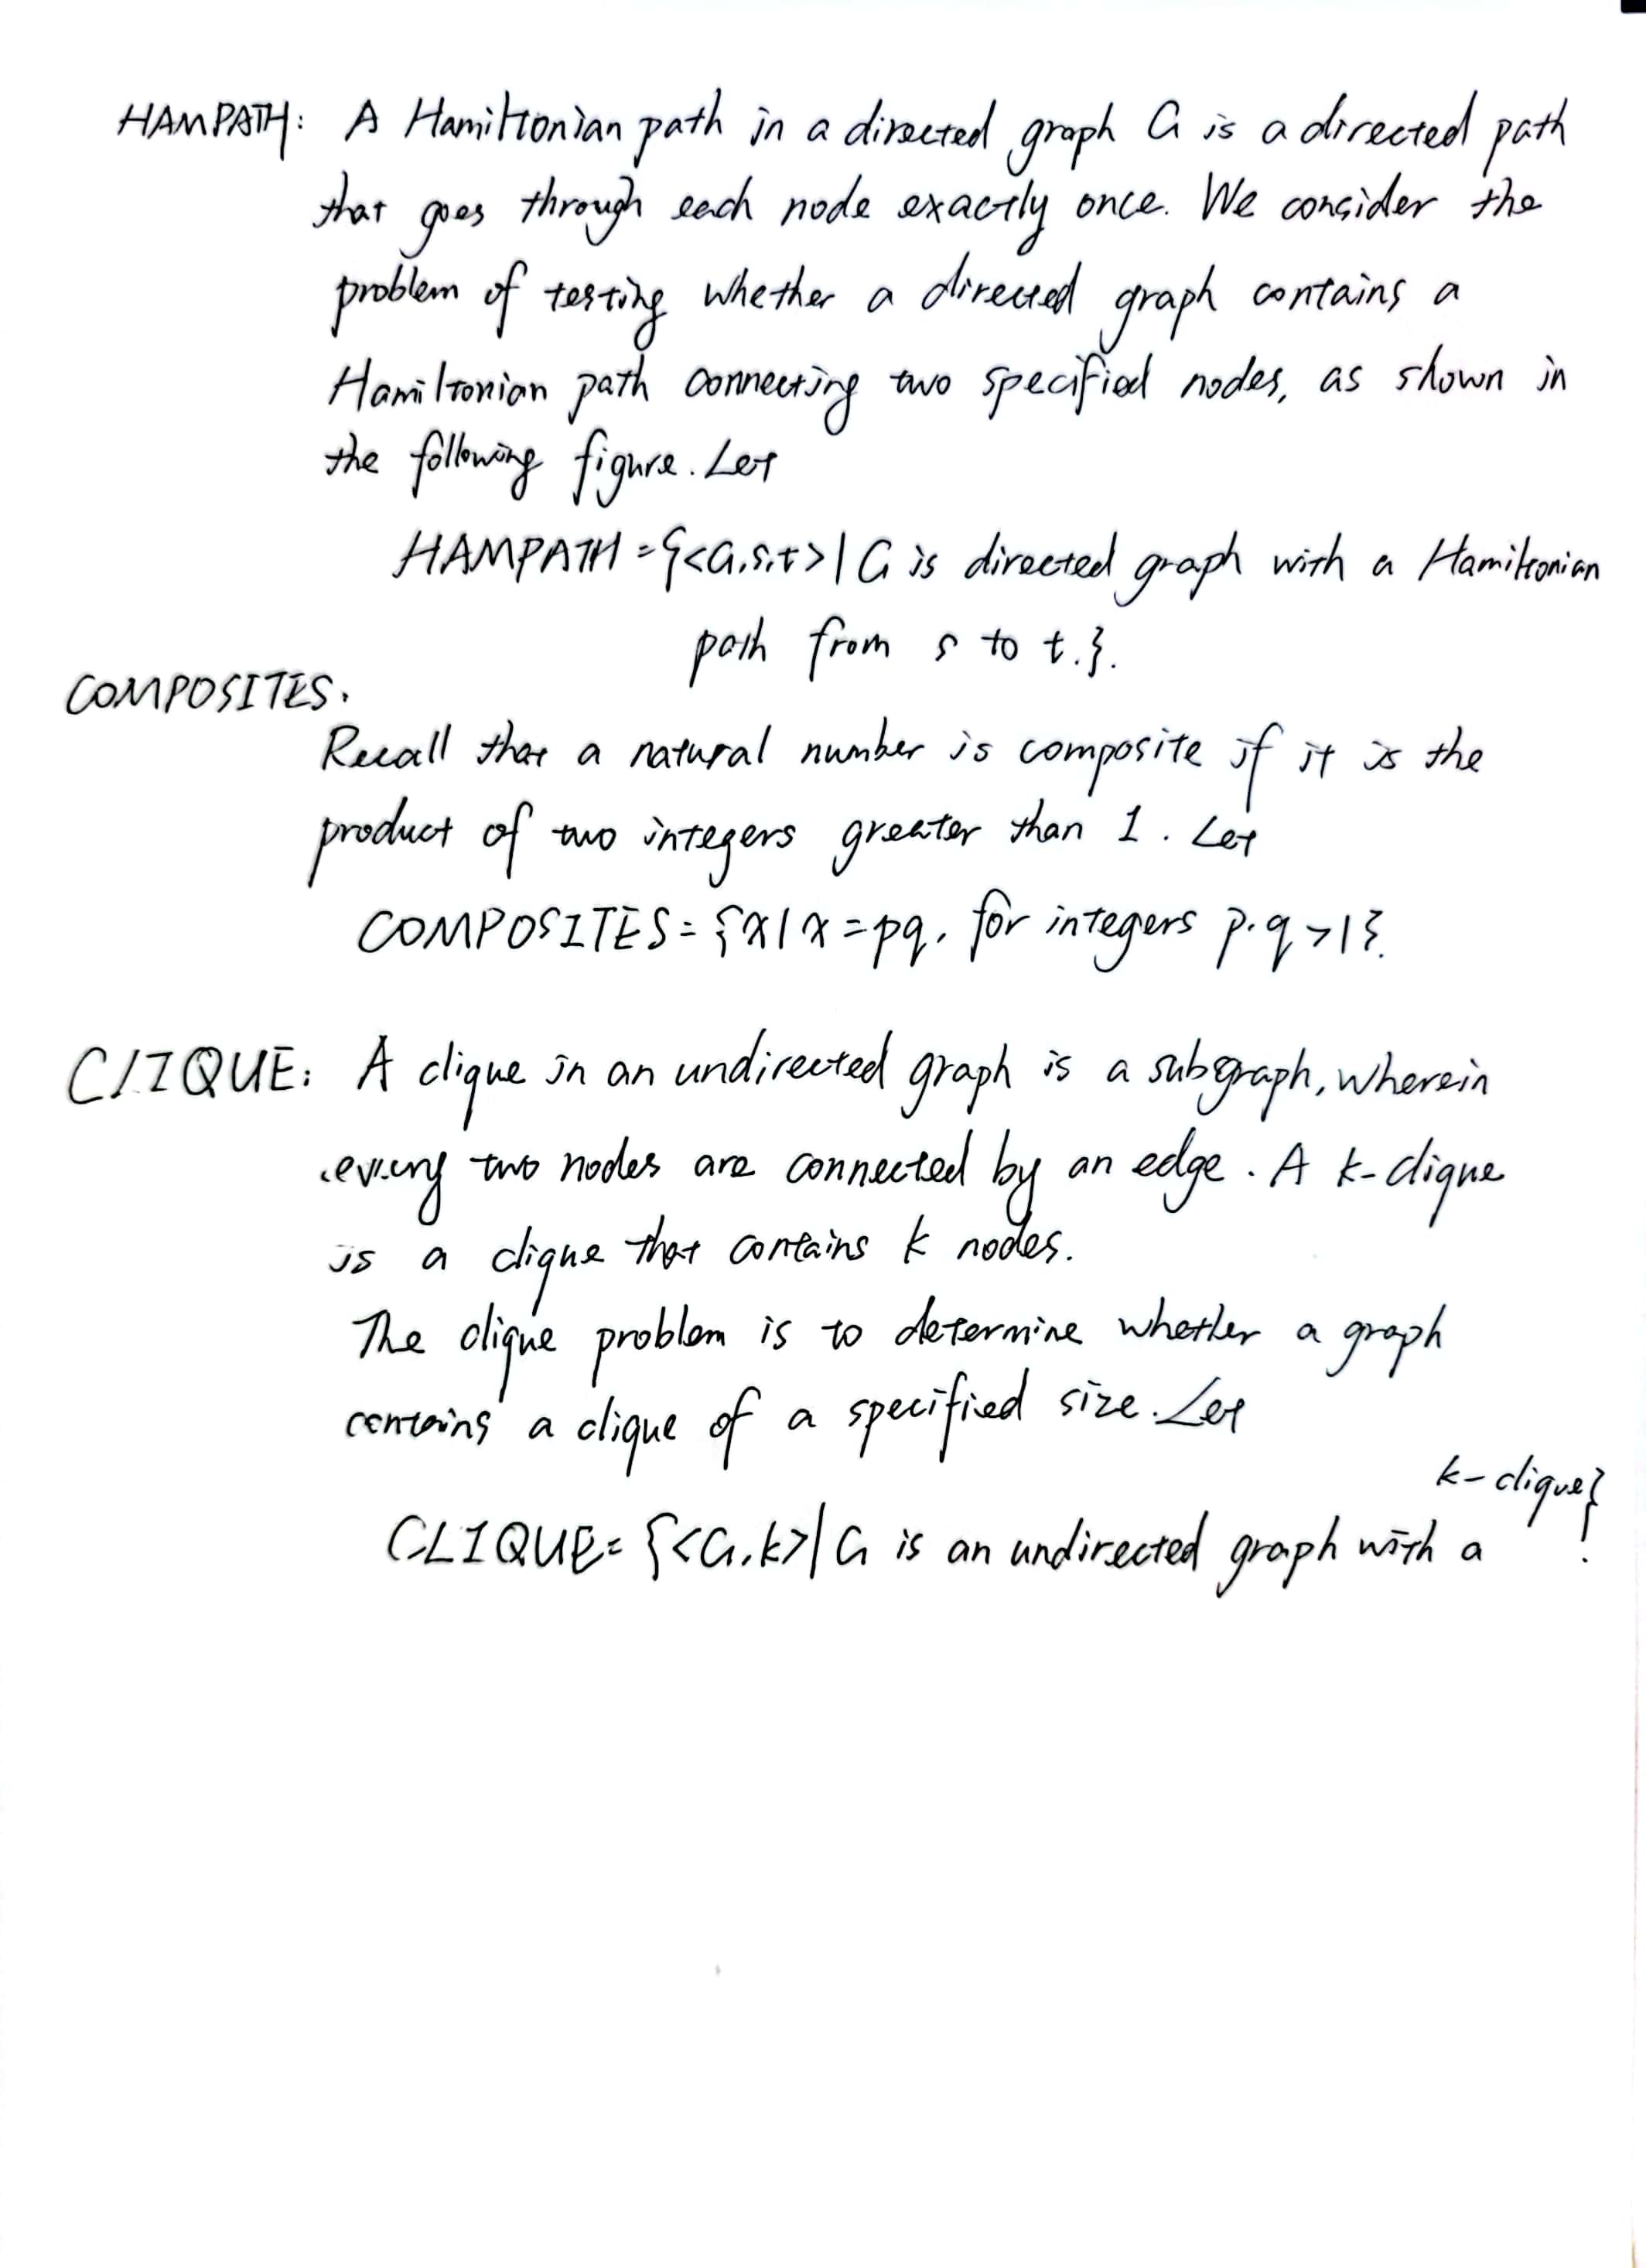 HAMPATH: A Hamiltonian path in a directed graph G is a directed path
that goes through each node exactly once. We consider the
problem of testing whether a directed graph contains a
Hamiltonian path connecting two specified nodes, as shown in
the following figure. Let
HAMPATH = {<G,s,t>| G is directed graph with a Hamiltonian
path from s to t.}.
COMPOSITES.
Recall that a natural number is composite if it is the
product of two integers greater than 1. Let
COMPOSITES = {x|x=pq, for integers p.q >1}.
CLIQUE: A clique in an undirected graph is a subgraph, wherein
every two nodes are connected by an edge. A k-clique
is a clique that contains k nodes.
The clique problem is to determine whether a graph
contains a clique of a specified size. Let
k-clique}
CLIQUE = {<G,k>| G is an undirected graph with a .